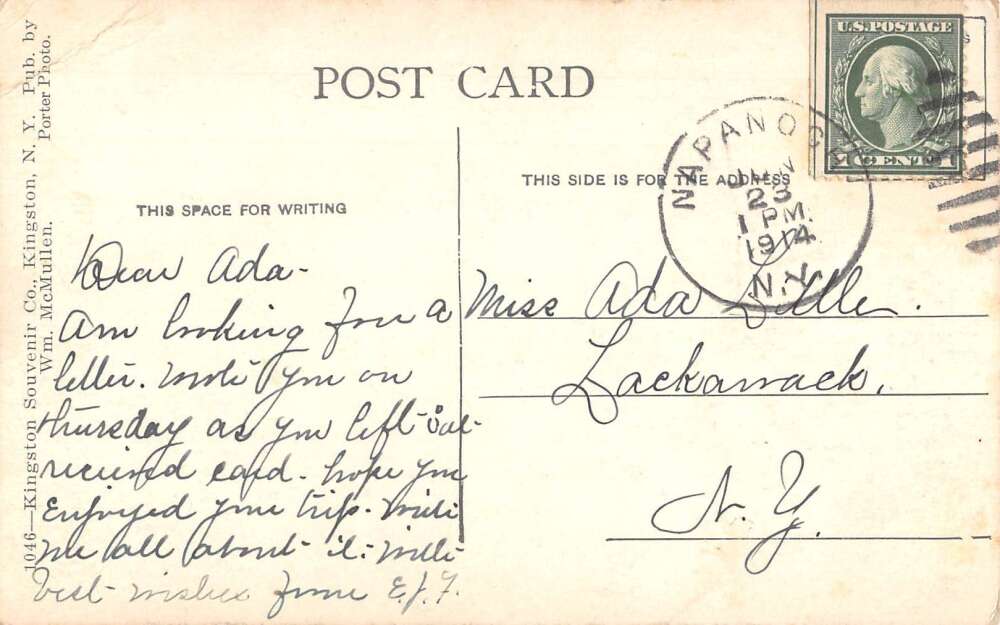 1046—Kingston Souvenir Co., Kingston, N. Y. Pub. by
Wm. McMullen. Porter Photo.
POST CARD
U.S. POSTAGE
1 CENT 1
NAPANOCH
JUN
23
1 PM.
1914
N.Y.
THIS SPACE FOR WRITING
THIS SIDE IS FOR THE ADDRESS
Dear Ada-
Am looking for a
letter. wrote you on
thursday as you left Sat-
received card. hope you
Enjoyed your trip. write
me all about it. with
best wishes from E.J.F.
Miss Ada
Lackawack,
N. Y.